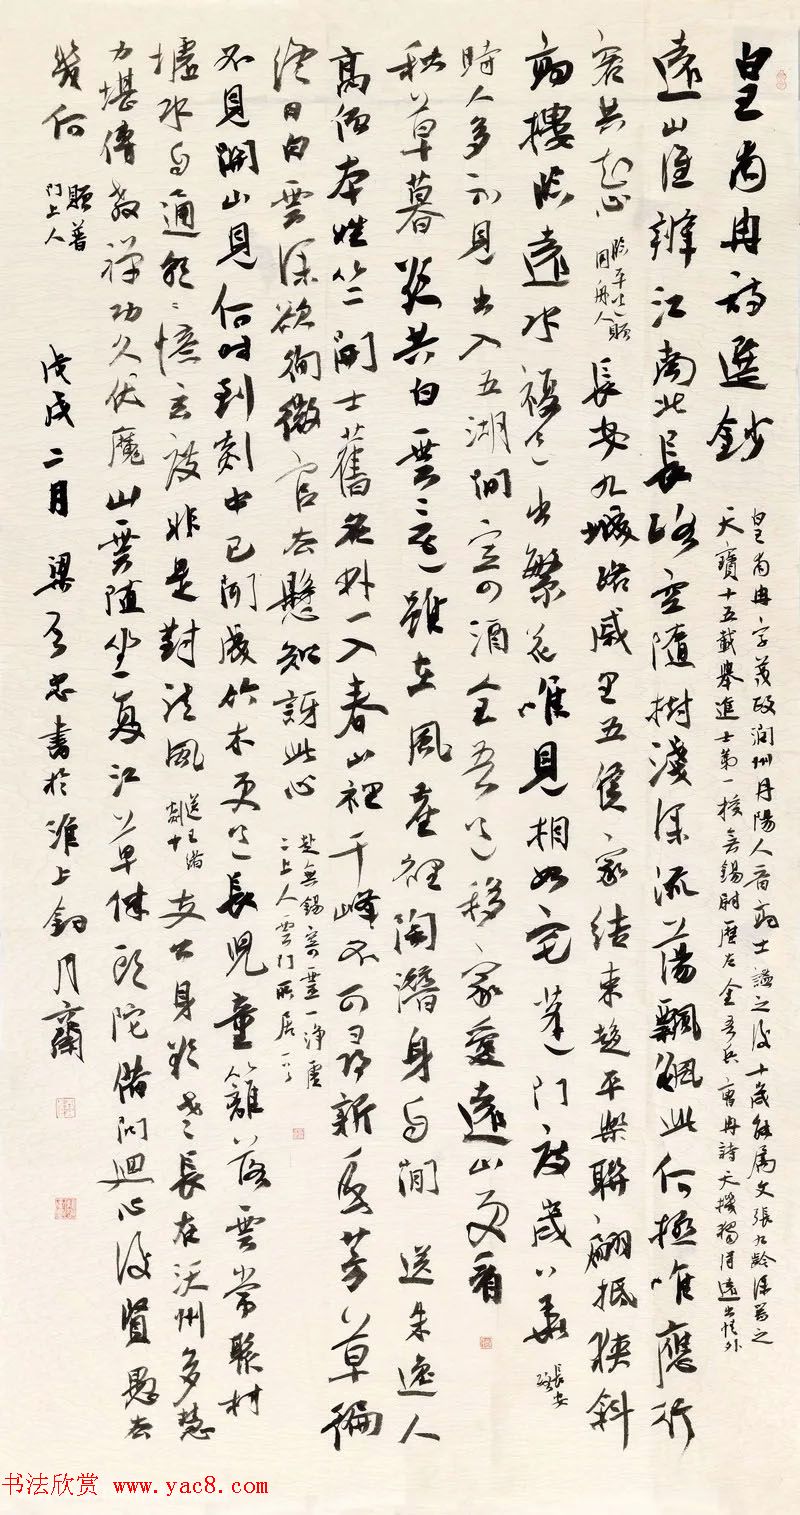 皇甫冉詩選鈔
皇甫冉字茂政潤州丹陽人晉高士謐之後十歲能屬文張九齡深器之
天寶十五載舉進士第一授無錫尉歷左金吾兵曹冉詩天機獨得遠出情外
遠山誰辨江南北長路空隨樹淺深流蕩飄飖此何極唯應行
客共知心 臨平道贈同舟人 長安九城路戚里五侯家結束趨平樂聯翩抵狹斜
高樓臨遠水複道出繁花唯見相如宅蓬門度歲華 長安路
時人多不見出入五湖間寄酒全吾道移家愛遠山更看
秋草暮欲共白雲還雖在風塵裡陶潛身自閒 送朱逸人
高僧本姓竺開士舊名林一入春山裡千峰不可尋新年芳草徧
終日白雲深欲徇微官去懸知訝此心 赴無錫寄靈一淨虛二上人雲門所居
不見開山見何時到剡中已聞成竹木更道長兒童籬落雲常聚村
墟水自通朝朝憶玄度非是對清風 送王緒剡中 支公身欲老長在沃州多慧
力堪傳教禪功久伏魔山雲隨坐夏江草伴頭陀借問廻心後賢愚去
幾何 贈普門上人 戊戌二月梁忠書於淮上釣月齋
书法欣赏 www.yac8.com